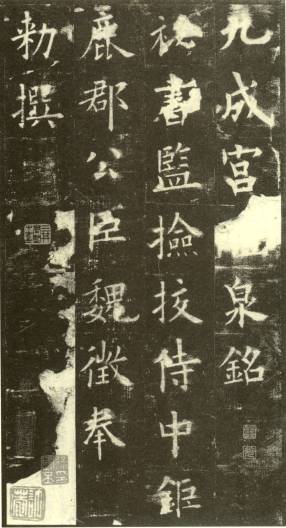 九成宮泉銘
秘書監撿挍侍中鉅
鹿郡公臣魏徵奉
勑撰